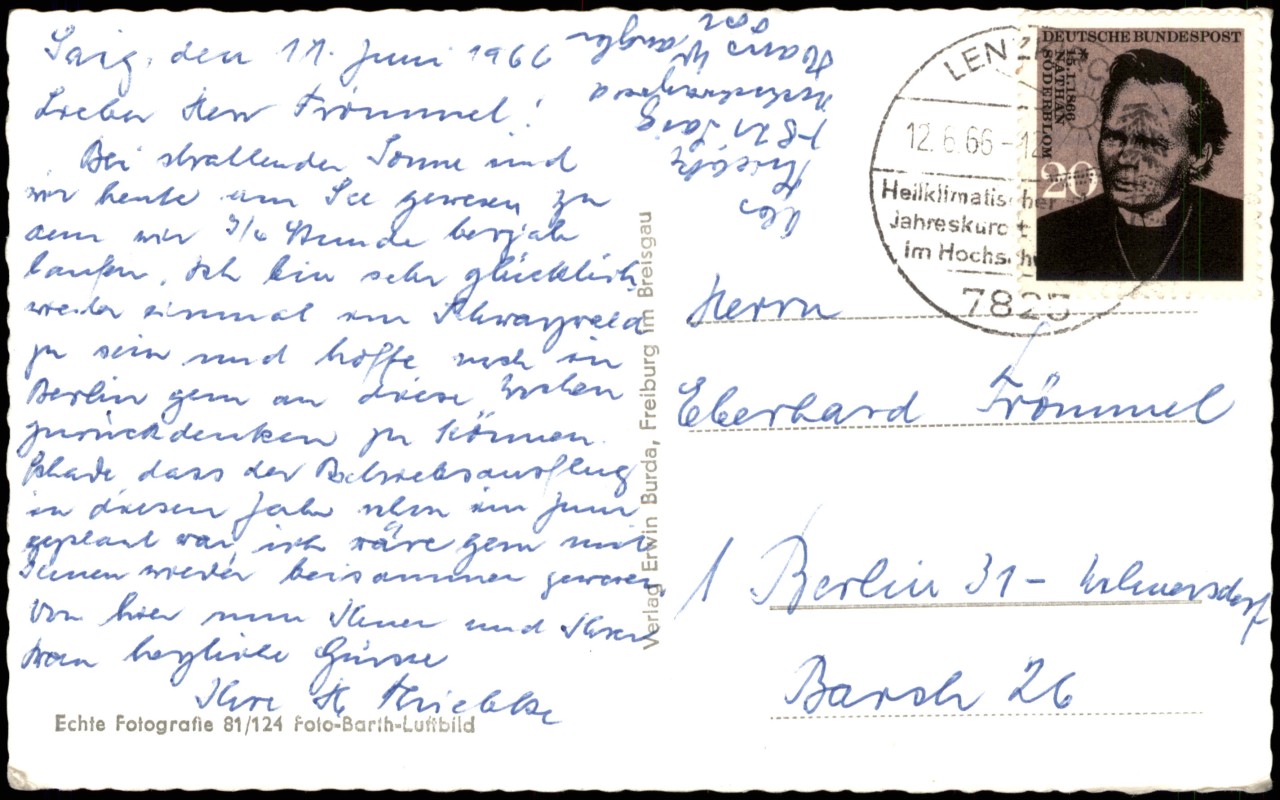 Saig, den 11. Juni 1966
Lieber Herr Frömmel!
Bei strahlender Sonne sind
wir heute am See gewesen, zu
dem wir 3/4 Stunde bergab
laufen, ich bin sehr glücklich,
wieder einmal im Schwarzwald
zu sein und hoffe noch in
Berlin gern an diese Wochen
zurückdenken zu können.
Schade, dass der Betriebsausflug
in diesem Jahr schon im Juni
geplant war, ich wäre gern mit
Ihnen wieder beisammen gewesen,
Von hier nun Ihnen und Ihrer
Frau herzliche Grüsse
Ihre H.
Echte Fotografie 81/124 Foto-Barth-Luftbild
Verlag Erwin Burda, Freiburg im Breisgau
Abs
7821 Saig
Hochschwarzwald
Haus
LENZ
12.6.66-12
Heilklimatischer
Jahreskurort
im Hochsch
7825
DEUTSCHE BUNDESPOST
15.1.1866
NATHAN
SÖDERBLOM
20
Herrn
Eberhard Frömmel
1 Berlin 31 - Wilmersdorf
26